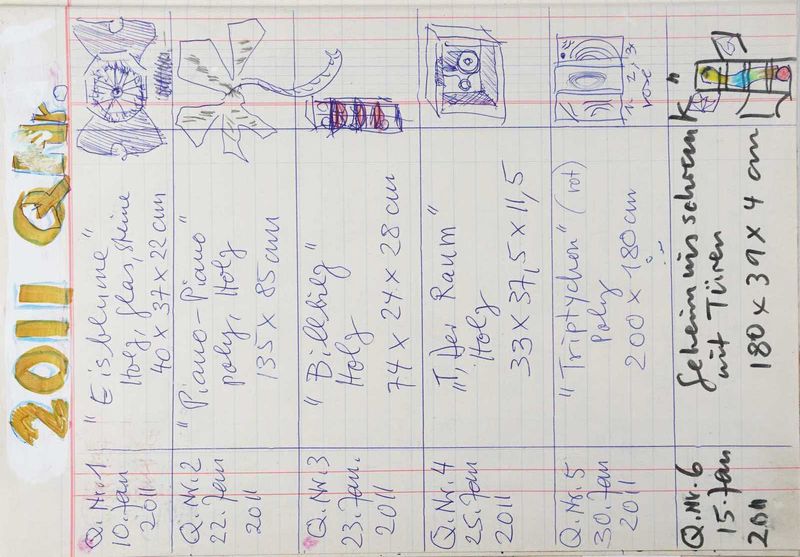 2011 Q.Nr.
Q.Nr.1
10.Jan
2011
"Eisblume"
Holz, Glas, Steine
40 x 37 x 22 cm
Q.Nr.2
22.Jan
2011
"Piano-Piano"
poly, Holz
135 x 85 cm
Q.Nr.3
23.Jan.
2011
"Billbieg"
Holz
74 x 24 x 28 cm
Q.Nr.4
25.Jan
2011
Der Raum"
Holz
33 x 37,5 x 11,5
Q.Nr.5
30.Jan
2011
"Triptychon" (rot)
Poly
200 x 180 cm
Q.Nr.6
15.Jan
2011
Geheimnisschrank"
mit Türen
180 x 39 x 4 cm